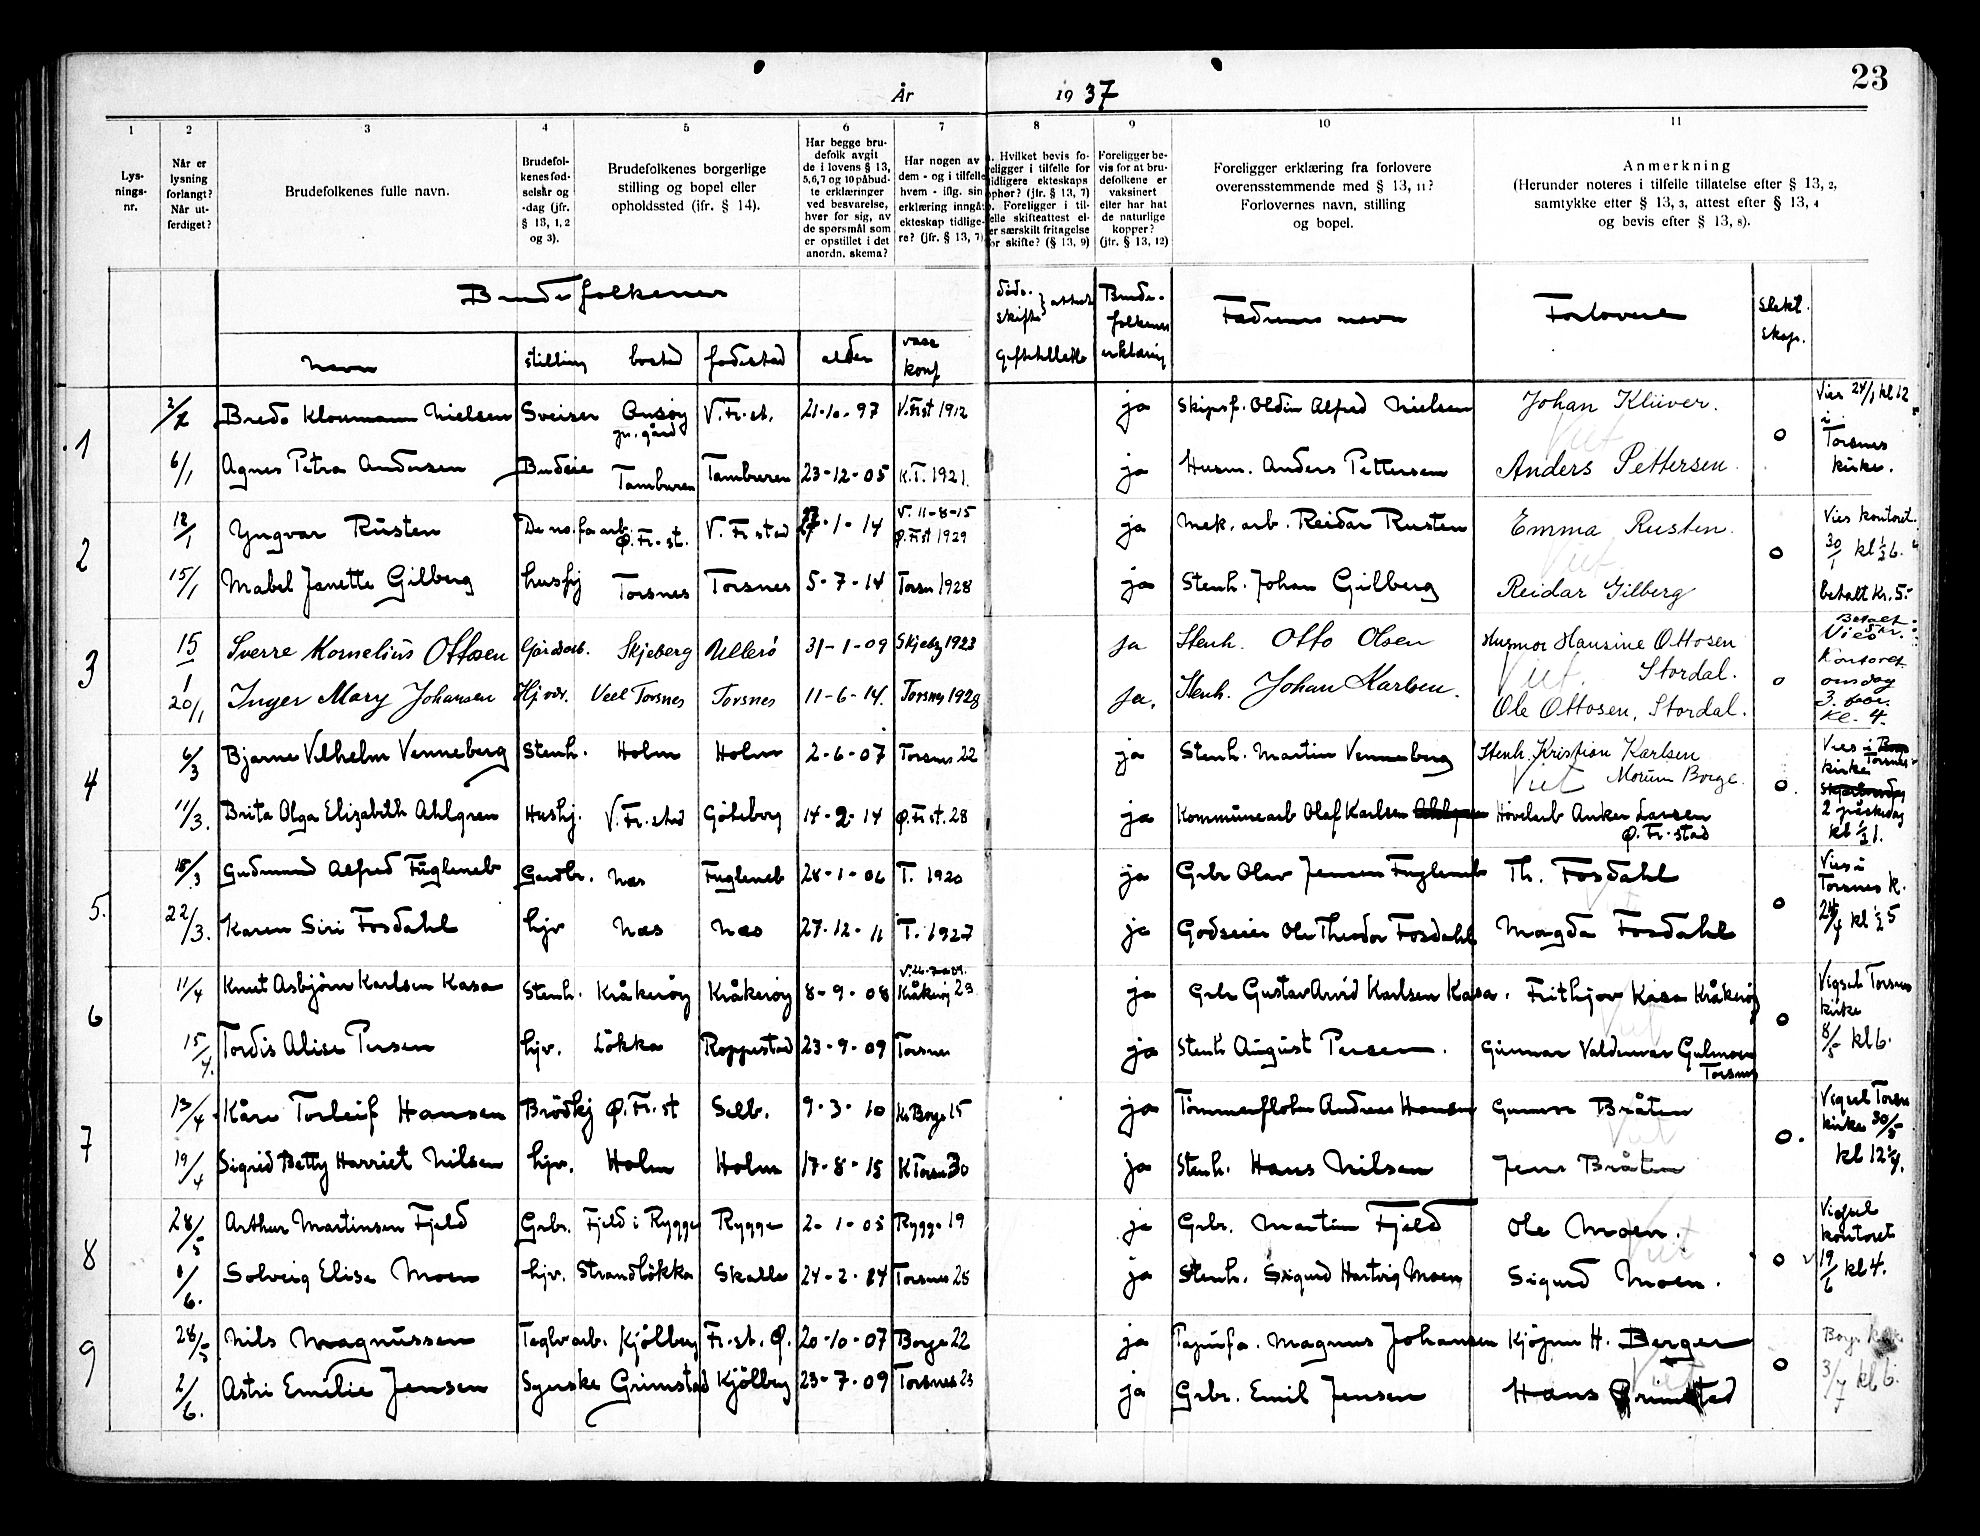 23
År 1937
1 2 3 4 5 6 7 8 9 10 11
Lys-
nings-
nr.
Når er
lysning
forlangt?
Når ut-
ferdiget?
Brudefolkenes fulle navn.
Brudefol-
kenes fød-
selsår og
-dag (jfr.
§ 13, 1, 2
og 3).
Brudefolkenes borgerlige
stilling og bopel eller
opholdssted (jfr. § 14).
Har begge bru-
defolk avgit
de i lovens § 13,
5, 6, 7 og 10 påbud-
te erklæringer
ved besvarelse,
hver for sig, av
de spørsmål som
er opstillet i det
anordn. skema?
Har nogen av
dem - og i tilfelle
hvem - iflg. sin
erklæring inngåt
ekteskap tidlige-
re? (jfr. § 13, 7)
. Hvilket bevis fo-
religger i tilfelle for
tidligere ekteskaps
ophør? (jfr. § 13, 7)
. Foreligger i til-
felle skifteattest el-
er særskilt fritagelse
or skifte? (§ 13, 9)
Foreligger be-
vis for at bru-
defolkene er
vaksinert
eller har hat
de naturlige
kopper?
(jfr. § 13, 12)
Foreligger erklæring fra forlovere
overensstemmende med § 13, 11?
Forlovernes navn, stilling
og bopel.
Anmerkning
(Herunder noteres i tilfelle tillatelse efter § 13, 2,
samtykke efter § 13, 3, attest efter § 13, 4
og bevis efter § 13, 8).
Brudefolkenes
døds- skifte } attest
Brude-
folkenes
erklæring
Fædrenes navn
Forlovere
slekt
skap.
navn stilling bosted fødested alder vacc konf
1 2/1 Bredo Kloumann Nielsen Sveiser Onsøy pr. gård V. Fr. st. 21-10-97 V. Frst 1912 ja Skipsf. Oldin Alfred Nielsen Johan Klüver. 0 Vies 24/1 kl 12
i Torsnes kirke.
6/1 Agnes Petra Andersen Budeie Tamburen Tamburen 23-12-05 K.T. 1921. ja Husm. Anders Pettersen Anders Pettersen.
2 12/1 Yngvar Rusten Ø. Fr. st. V. Fr stad 27-1-14 V. 11-8-15 Ø. Frst 1929 ja Mek. arb. Reidar Rusten Emma Rusten. 0 Vies kontoret
30/1 kl ½6.
15/1 Mabel Janette Gilberg hushj Torsnes Torsnes 5-7-14 Torsn 1928 ja Stenh. Johan Gilberg Reidar Gilberg betalt kr. 5-
3 15/1 Sverre Kornelius Ottosen Gårdsarb. Skjeberg Ullerø 31-1-09 Skjebg 1923 ja Stenh. Otto Olsen Husmor Hansine Ottosen Stordal. 0 Betalt 5 kr.
Vies Kontoret onsdag
3. febr. Kl. 4.
20/1 Inger Mary Johansen Hj.vær. Veel Torsnes Torsnes 11-6-14. Torsnes 1928 ja. Stenh. Johan Karlsen. Ole Ottosen, Stordal.
4 6/3 Bjarne Vilhelm Venneberg Stenh. Holm Holm 2-6-07 Torsnes 22 ja Stenh. Martin Venneberg Stenh. Kristian Karlsen Moum Borge. 0. Vies i Borge Torsnes kirke
2 påskedag
kl ½1.
11/3. Brita Olga Elizabeth Ahlgren Hushj. V. Fr. stad Göteborg 14-2-14 Ø. Fr st. 28 ja Kommunearb Olaf Karlsen Ahlgren Høvelarb Anker Larsen Ø. Fr. stad
5. 18/3 Gudmund Alfred Fugleneb Gardbr. Næs Fugleneb 28-1-06 T. 1920 ja Grbr Olav Jensen Fugleneb Th. Fosdahl 0 Vies i
Torsnes k.
24/4 kl ½5
22/3. Karen Siri Fosdahl hjv Næs Næs 27-12-11 T. 1927 ja Godseier Ole Theodor Fosdahl Magda Fosdahl
6 11/4 Knut Asbjørn Karlsen Kasa Stenh. Kråkerøy Kråkerøy 8-9-08 Kråkerøy 23 ja Grbr Gustav Arvid Karlsen Kasa. Frithjov Kasa Kråkerøy 0 Vigsel Torsnes
kirke
8/5 kl 6.
15/4. Tordis Alise Persen hjv. Løkka Roppestad 23-9-09 Torsnes ja Stenh August Persen. Gunnar Valdemar Gulmoen Torsnes
7 13/4 Kåre Torleif Hansen Brødkj Ø. Fr. st Selb. 9-3-10 ja Tømmerfløter Andreas Hansen Gunvor Bråten 0. Vigsel Torsn
kirke 30/5
kl 12¼.
19/4 Sigrid Betty Harriet Nilsen hjv. Holm Holm 17-8-15 K Torsn 30 ja Stenh. Hans Nilsen Jens Bråten
8 28/5 Arthur Martinsen Fjeld Grbr. Fjeld i Rygge Rygge 2-1-05 Rygge 19 ja Grbr. Martin Fjeld Ole Moen. 0 Vigsel
kontoret
19/6 kl 4.
1/6. Solveig Elise Moen hjv. Strandløkka Skalle 24-2-84 Torsnes 25 ja Stenh. Sigurd Hartvig Moen Sigurd Moen.
9 28/5 Nils Magnussen Teglv arb. Kjølberg Fr. st. Ø. 20-10-07 Borge 22 ja Magnus Johansen Kjøpm H. Berger 0 Borge kirke
3/7 kl 6.
2/6. Astri Emilie Jensen Syerske Grimstad Kjølberg 23-7-09 Torsnes 23 ja Grbr. Emil Jensen Hans Grimstad